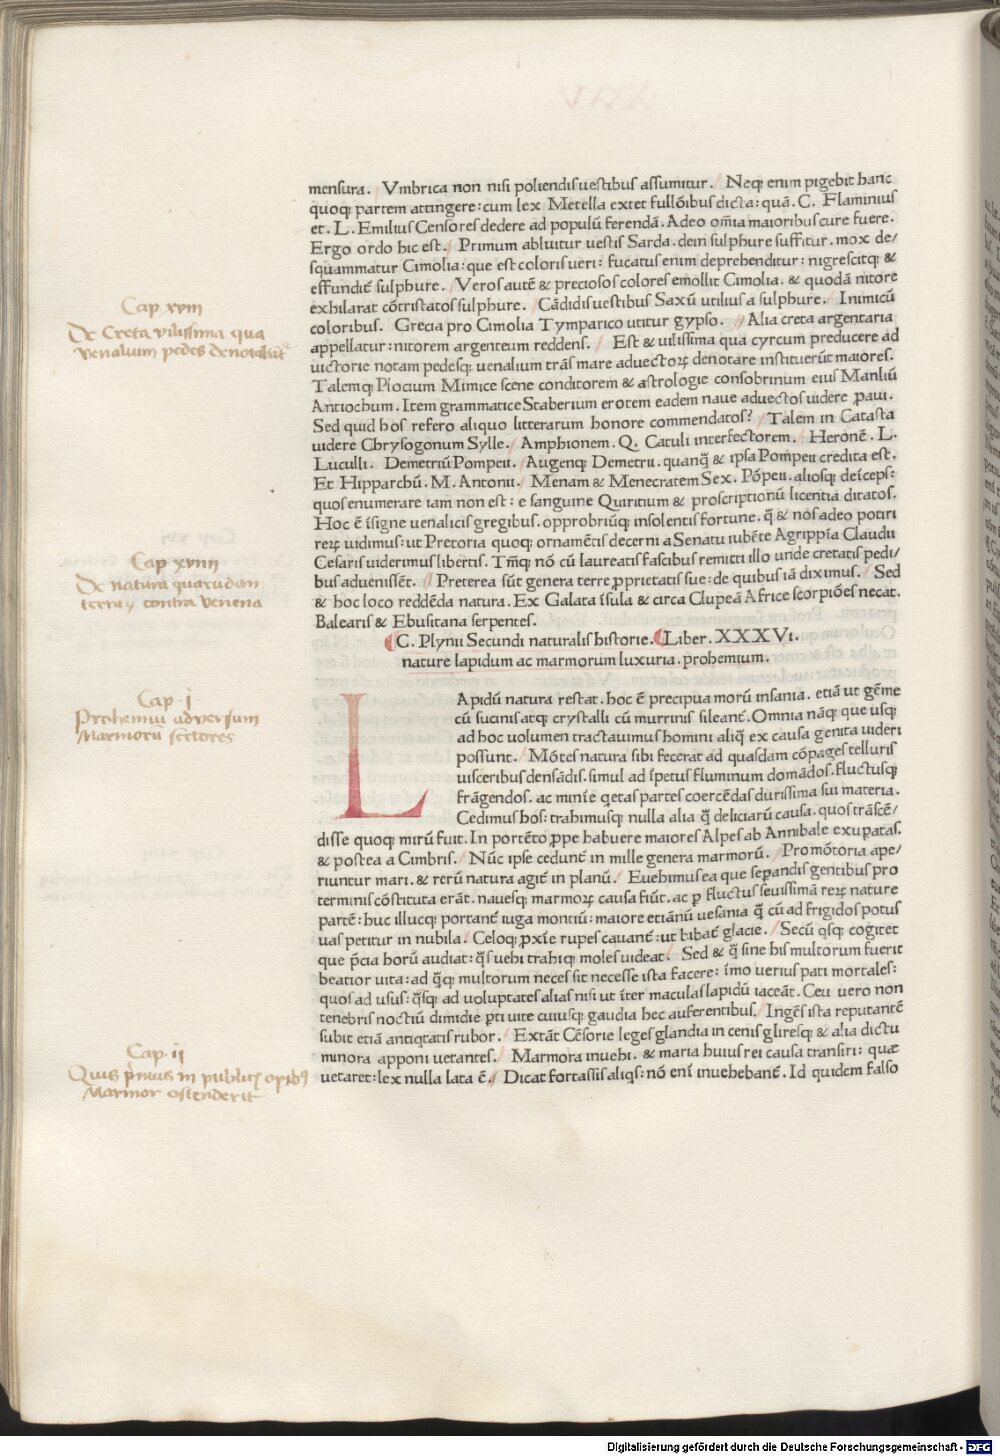 mensura. Vmbrica non nisi poliendis uestibus assumitur. Neqꝫ enim pigebit hanc
quoqꝫ partem attingere: cum lex Metella extet fullōibus dicta: quā. C. Flaminius
et. L. Emilius Censores dedere ad populū ferendā. Adeo om̄ia maioribus cure fuere.
Ergo ordo hic est. Primum abluitur uestis Sarda. dein sulphure suffitur. mox de/
squammatur Cimolia: que est coloris ueri: fucatus enim deprehenditur: nigrescitqꝫ &
effundit᷑ sulphure. Veros autē & preciosos colores emollit Cimolia. & quodā nitore
exhilarat cōtristatos sulphure. Cādidis uestibus Saxū utilius a sulphure. Inimicū
coloribus. Grecia pro Cimolia Tymparico utitur gypso. Alia creta argentaria
appellatur: nitorem argenteum reddens. Est & uilissima qua cyrcum preducere ad
uictorie notam pedesqꝫ uenalium trās mare aduectoꝝ denotare instituerūt maiores.
Talemqꝫ Plocium Mimice scene conditorem & astrologie consobrinum eius Manliū
Antiochum. Item grammatice Staberium erotem eadem naue aduectos uidere ꝓaui.
Sed quid hos refero aliquo litterarum honore commendatos? Talem in Catasta
uidere Chrysogonum Sylle. Amphionem. Q. Catuli interfectorem. Heronē. L.
Luculli. Demetriū Pompeii. Augenqꝫ Demetrii. quanq̄ & ipsa Pompeii credita est.
Et Hipparchū. M. Antonii. Menam & Menecratem Sex. Pōpeii. aliosqꝫ deīceps:
quos enumerare iam̄ non est: e sanguine Quiritium & proscriptionū licentia ditatos.
Hoc ē īsigne uenalicis gregibus. opprobriūqꝫ insolentis fortune. q̄ & nos adeo potiri
reꝝ uidimus: ut Pretoria quoqꝫ ornamētis decerni a Senatu iubēte Agrippīa Claudii
Cesaris uiderimus libertis. Tm̄qꝫ nō cū laureatis fascibus remitti illo unde cretatis pedi/
bus aduenissēt. Preterea sūt genera terre ꝓprietatis sue: de quibus iā diximus. Sed
& hoc loco reddēda natura. Ex Galata īsula & circa Clupeā Africe scorpiōes necat.
Balearis & Ebusitana serpentes.
C. Plynii Secundi naturalis historie. Liber. XXXVI.
nature lapidum ac marmorum luxuria. prohemium.
LApidū natura restat. hoc ē precipua morū insania. etiā ut gēme
cū sucinis atqꝫ crystalli cū murrinis sileant᷑. Omnia nāqꝫ que usqꝫ
ad hoc uolumen tractauimus homini aliq̄ ex causa genita uideri
possunt. Mōtes natura sibi fecerat ad quasdam cōpages telluris
uisceribus densādis. simul ad īpetus fluminum domādos. fluctusqꝫ
frāgendos. ac minīe q̇etas partes coercēdas durissima sui materia.
Cedimus hos: trahimusqꝫ nulla alia q̄ deliciarū causa. quos trāscē/
disse quoqꝫ mirū fuit. In portēto ꝓpe habuere maiores Alpes ab Annibale exuꝑatas.
& postea a Cimbris. Nūc ipse cedunt᷑ in mille genera marmorū. Promōtoria ape/
riuntur mari. & rerū natura agit᷑ in planū. Euehimus ea que seꝑandis gentibus pro
terminis cōstituta erāt. nauesqꝫ marmoꝝ causa fiūt. ac ꝑ fluctus seuissimā reꝝ nature
partē: huc illucqꝫ portant᷑ iuga montiū: maiore etiānū uesania q̄ cū ad frigidos potus
uas petitur in nubila. Celoqꝫ ꝓxīe rupes cauant᷑: ut bibat᷑ glacie. Secū qsqꝫ cogitet
que p̄cia horū audiat: q̄s uehi trahiqꝫ moles uideat. Sed & q̄ sine his multorum fuerit
beatior uita: ad q̄qꝫ multorum neces sit necesse ista facere: īmo uerius pati mortales:
quos ad usus: q̄sqꝫ ad uoluptates alias nisi ut īter maculas lapidū iaceāt. Ceu uero non
tenebris noctiū dimidie ꝑti uite cuiusqꝫ gaudia hec auferentibus. Ingēs ista reputantē
subit etiā antiq̇tatis rubor. Extāt Cēsorie leges glandia in cenis gliresqꝫ & alia dictu
minora apponi uetantes. Marmora inuehi. & maria huius rei causa transiri: quæ
uetaret: lex nulla lata ē. Dicat fortassis aliqs: nō enī inuehebant᷑. Id quidem falso
Cap xviii
De Creta vilissima qua
venalium pedes denotabāt᷑
Cap xviiii
De natura quarundam
terraꝝ contra venena
Cap. i
Prohemiū adversum
Marmorū sectores
Cap. ii
Quis p̄mus in publicis opībꝰ
Marmor ostenderit
Digitalisierung gefördert durch die Deutsche Forschungsgemeinschaft - DFG